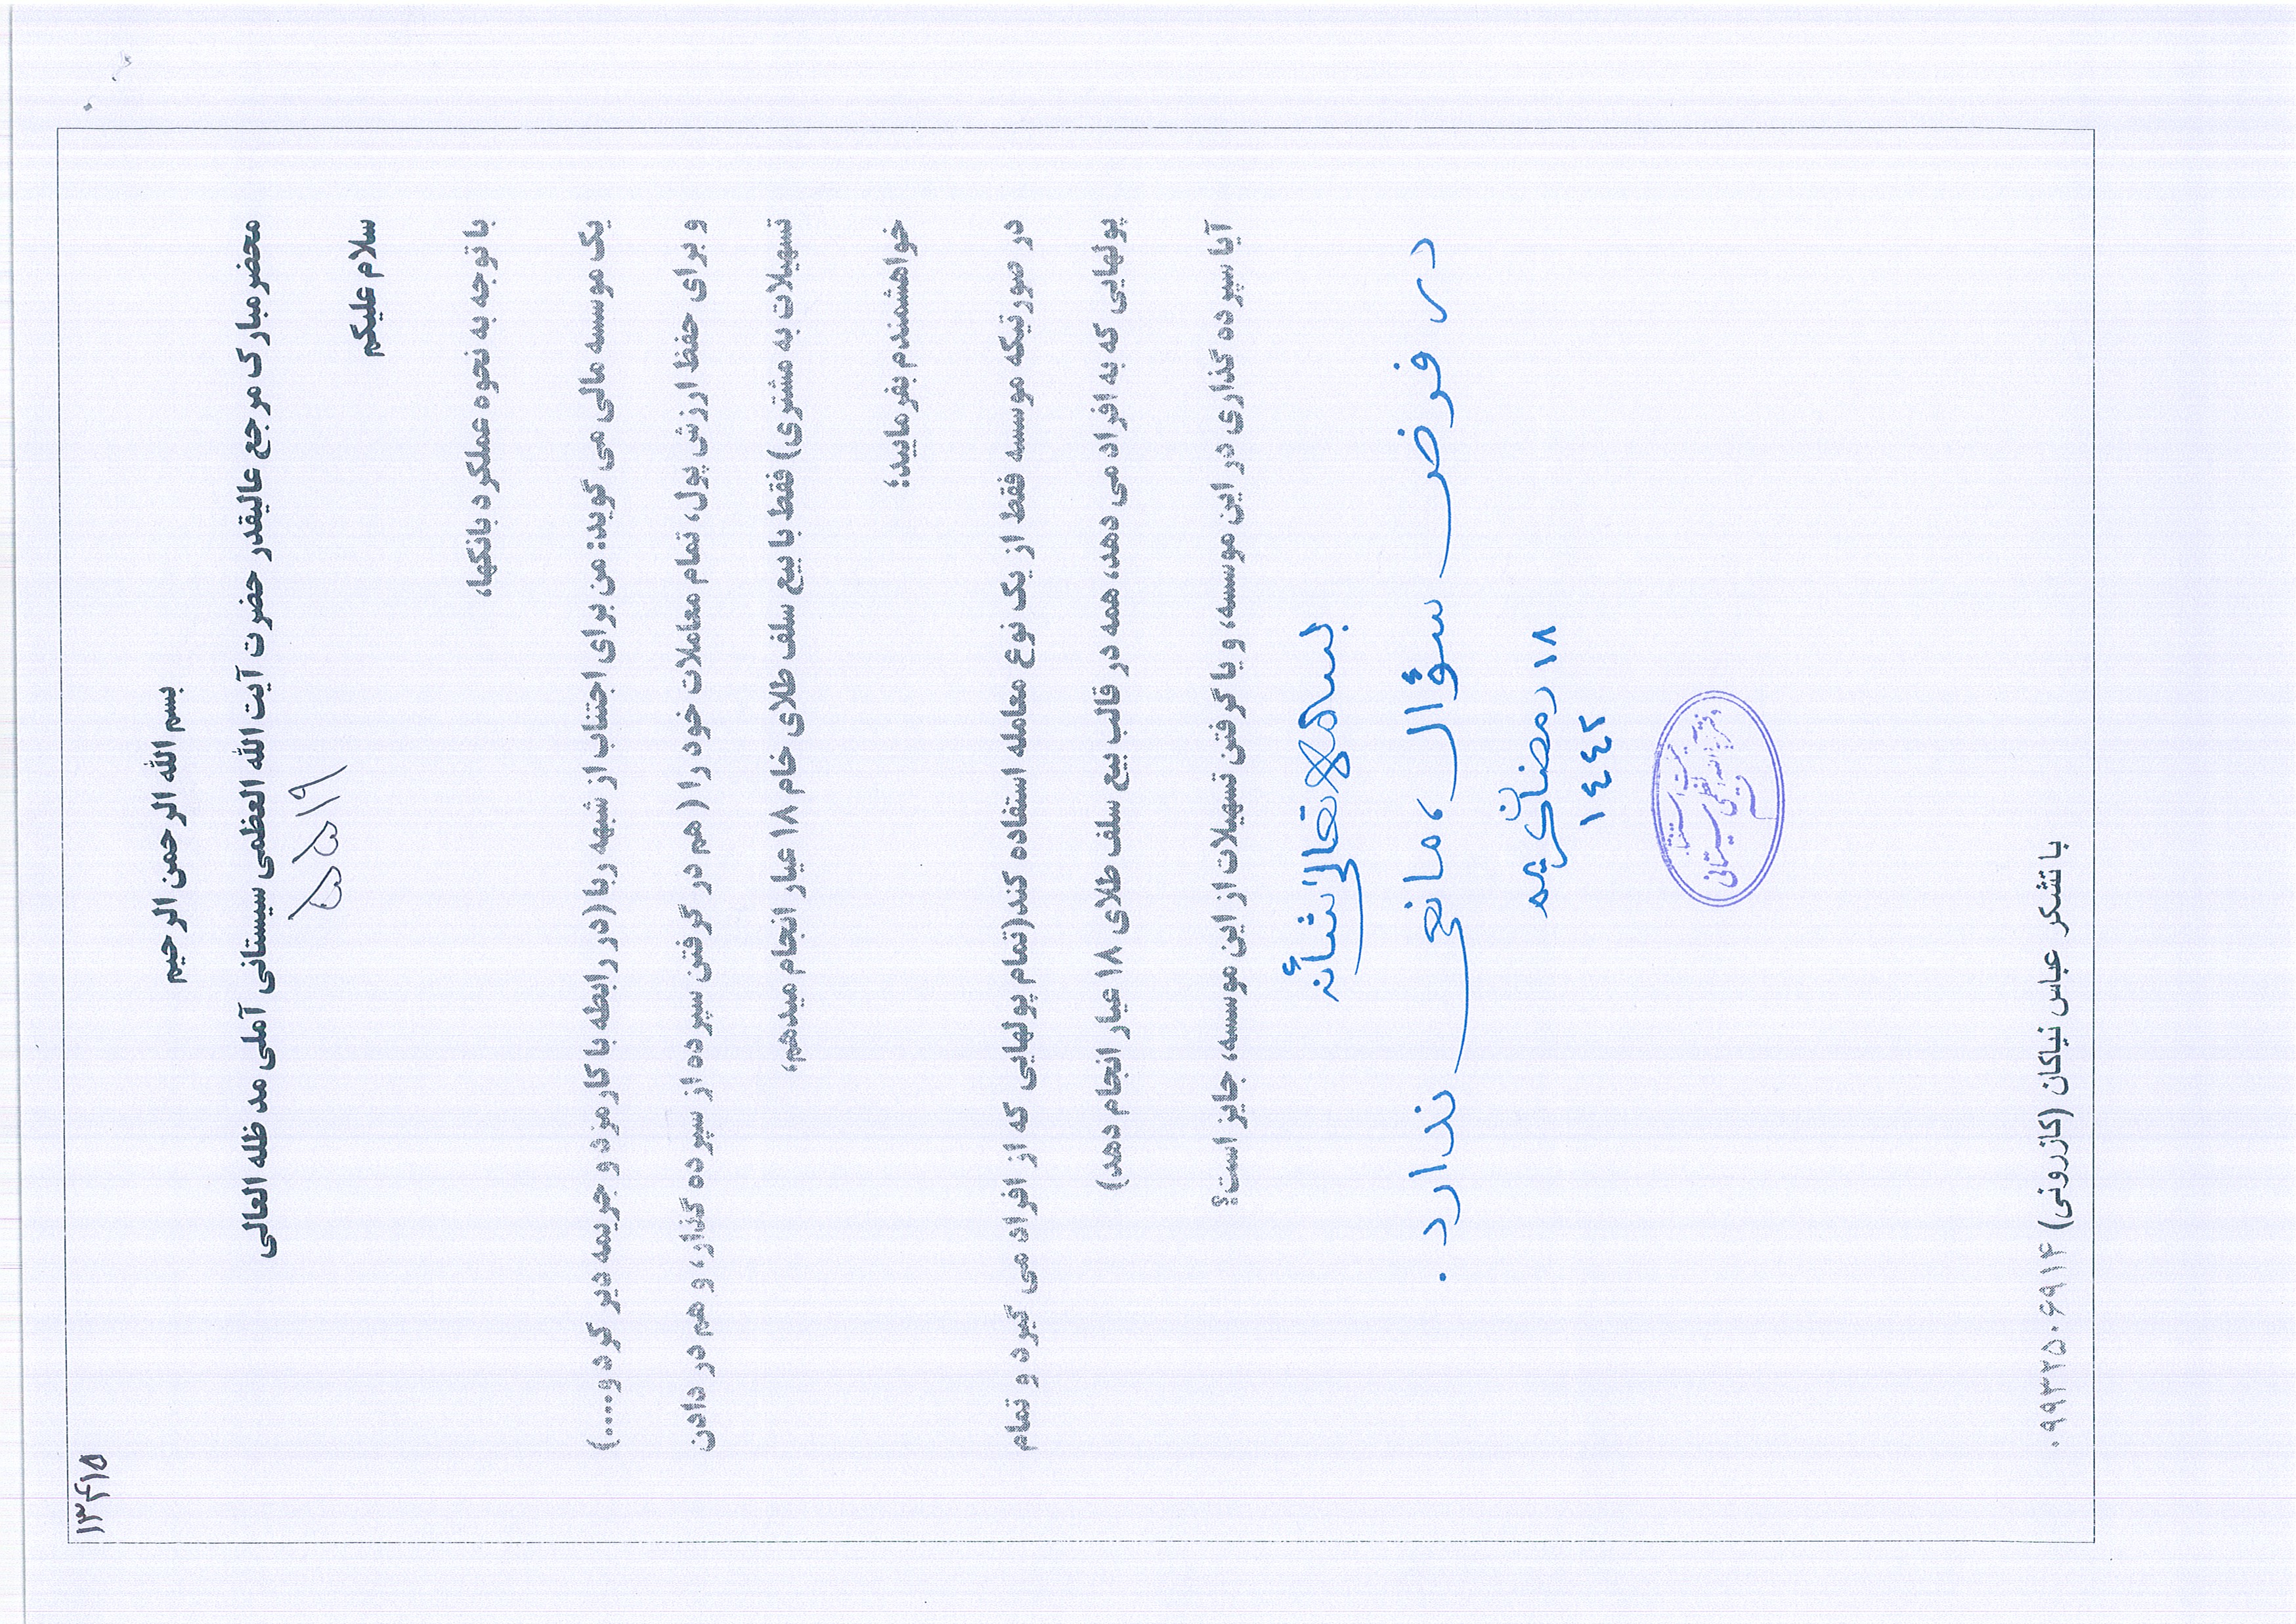 ۱۳۴۱۵
بسم الله الرحمن الرحیم
محضر مبارک مرجع عالیقدر حضرت آیت الله العظمی سیستانی آملی مد ظله العالی
۵۵۱۹
سلام علیکم
با توجه به نحوه عملکرد بانکها،
یک موسسه مالی می گوید: من برای اجتناب از شبهه ربا (در رابطه با کارمزد و جریمه دیر کرد و....)
و برای حفظ ارزش پول، تمام معاملات خود را (هم در گرفتن سپرده از سپرده گذار، و هم در دادن
تسهیلات به مشتری) فقط با بیع سلف طلای خام ۱۸ عیار انجام میدهم،
خواهشمندم بفرمایید؛
در صورتیکه موسسه فقط از یک نوع معامله استفاده کند(تمام پولهایی که از افراد می گیرد و تمام
پولهایی که به افراد می دهد، همه در قالب بیع سلف طلای ۱۸ عیار انجام دهد)
آیا سپرده گذاری در این موسسه، و یا گرفتن تسهیلات از این موسسه، جایز است؟
بسمه تعالی شأنه
در فرض سؤال، مانعی ندارد.
۱۸ رمضان
۱٤٤٢
سیستانی
با تشکر عباس نیاکان (کازرونی) ۰۹۹۳۲۵۰۶۹۱۴